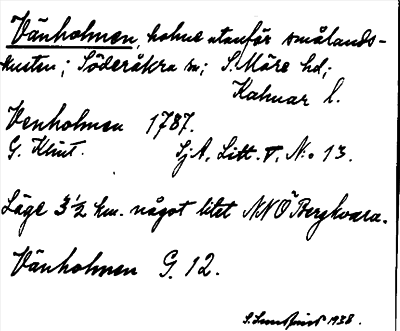 Vänholmen, holme utanför smålands-
kusten; Söderåkra sn; S. Möre hd;
Kalmar l.
Venholmen 1787.
G. Klint. SjA, Litt. V, N:o 13.
Läge 3 1/2 km. något litet NNÖ Bergkvara.
Vänholmen G. 12.
1938.